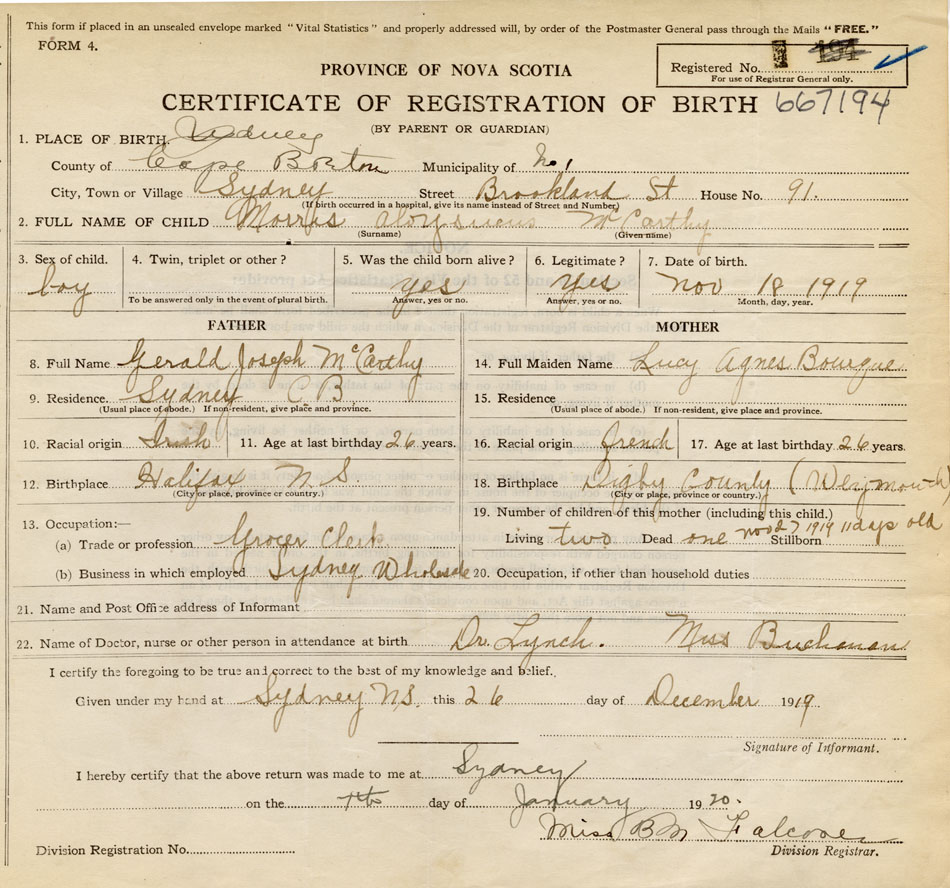 This form if placed in an unsealed envelope marked "Vital Statistics" and properly addressed will, by order of the Postmaster General pass through the Mails "FREE."
FORM 4.
Registered No.
For use of Registrar General only.
PROVINCE OF NOVA SCOTIA
CERTIFICATE OF REGISTRATION OF BIRTH 667194
(BY PARENT OR GUARDIAN)
1. PLACE OF BIRTH Sydney
County of Cape Breton Municipality of No 1
City, Town or Village Sydney Street Brookland St House No. 91.
(If birth occurred in a hospital, give its name instead of Street and Number)
2. FULL NAME OF CHILD Morris Aloysicus McCarthy
(Surname) (Given name)
3. Sex of child. 4. Twin, triplet or other? 5. Was the child born alive? 6. Legitimate? 7. Date of birth.
boy yes Yes Nov 18 1919
To be answered only in the event of plural birth. Answer, yes or no. Answer, yes or no. Month, day, year.
FATHER MOTHER
8. Full Name Gerald Joseph McCarthy 14. Full Maiden Name Lucy Agnes Bourque
9. Residence. Sydney C.B. 15. Residence
(Usual place of abode.) If non-resident, give place and province. (Usual place of abode.) If non-resident, give place and province.
10. Racial origin Irish 11. Age at last birthday 26 years. 16. Racial origin french 17. Age at last birthday 26 years.
12. Birthplace Halifax N.S. 18. Birthplace Digby County (Weymouth)
(City or place, province or country.) (City or place, province or country.)
13. Occupation:— 19. Number of children of this mother (including this child.)
(a) Trade or profession Grocer Clerk Living two Dead one 1919 11 days old Stillborn
(b) Business in which employed Sydney Wholesale 20. Occupation, if other than household duties
21. Name and Post Office address of Informant
22. Name of Doctor, nurse or other person in attendance at birth Dr. Lynch. Miss Buchanan
I certify the foregoing to be true and correct to the best of my knowledge and belief.
Given under my hand at Sydney N.S. this 26 day of December 1919
Signature of Informant.
I hereby certify that the above return was made to me at Sydney
on the 7th day of January 1920.
Miss B M Falconer
Division Registration No. Division Registrar.